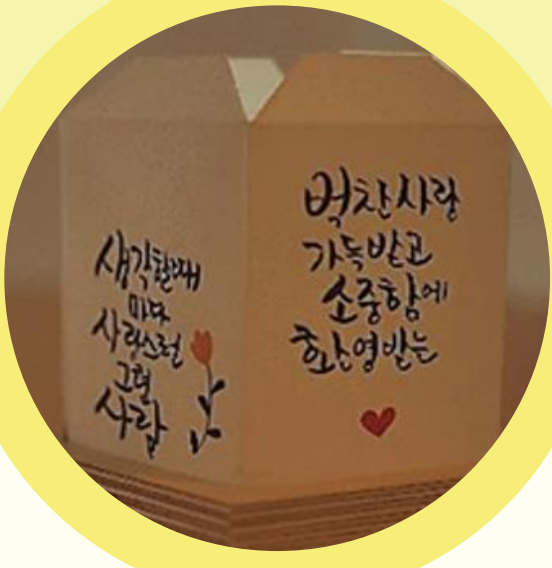 생각할때
마다
사랑스런
그런
사람
벅찬사랑
가득받고
소중함에
환영받는